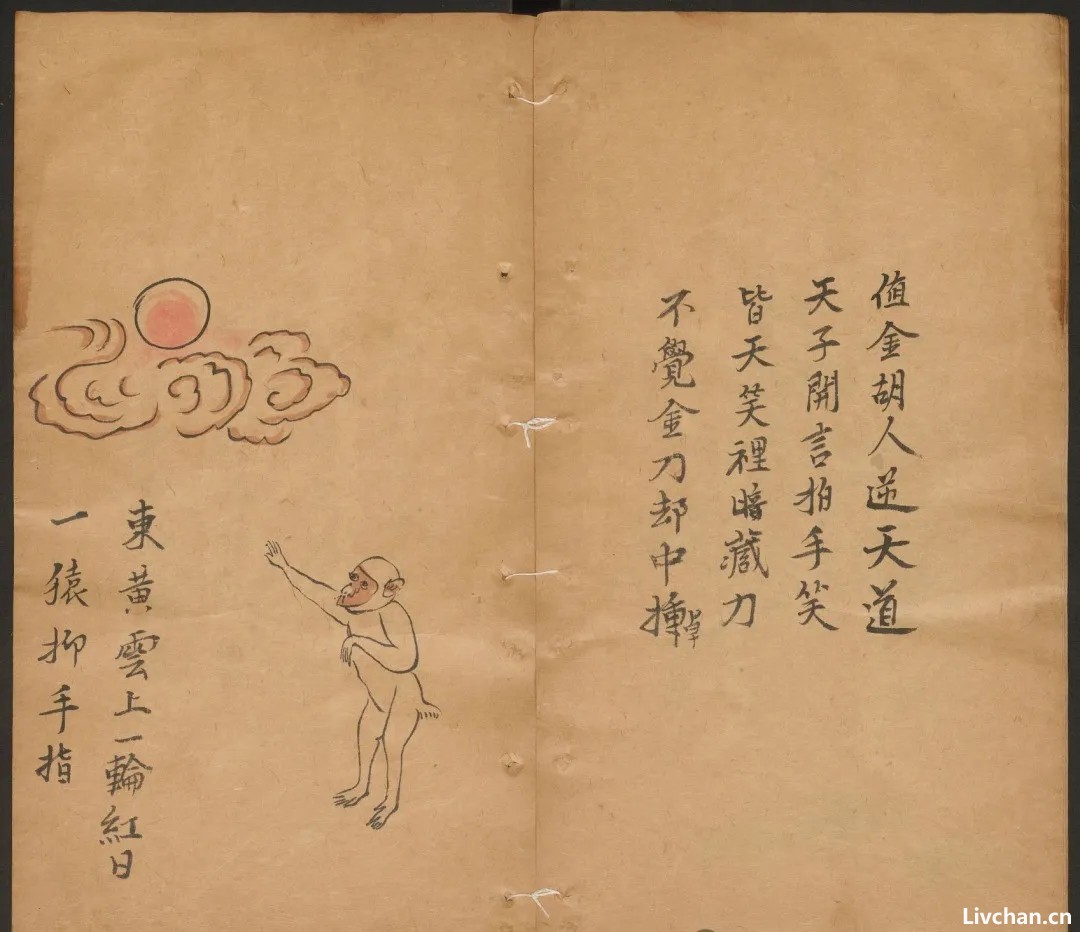 值金胡人逆天道
天子開言拍手笑
皆天笑裡暗藏刀
不覺金刀却中揰
東黃雲上一輪紅日
一猿抑手指
Livchan.cn